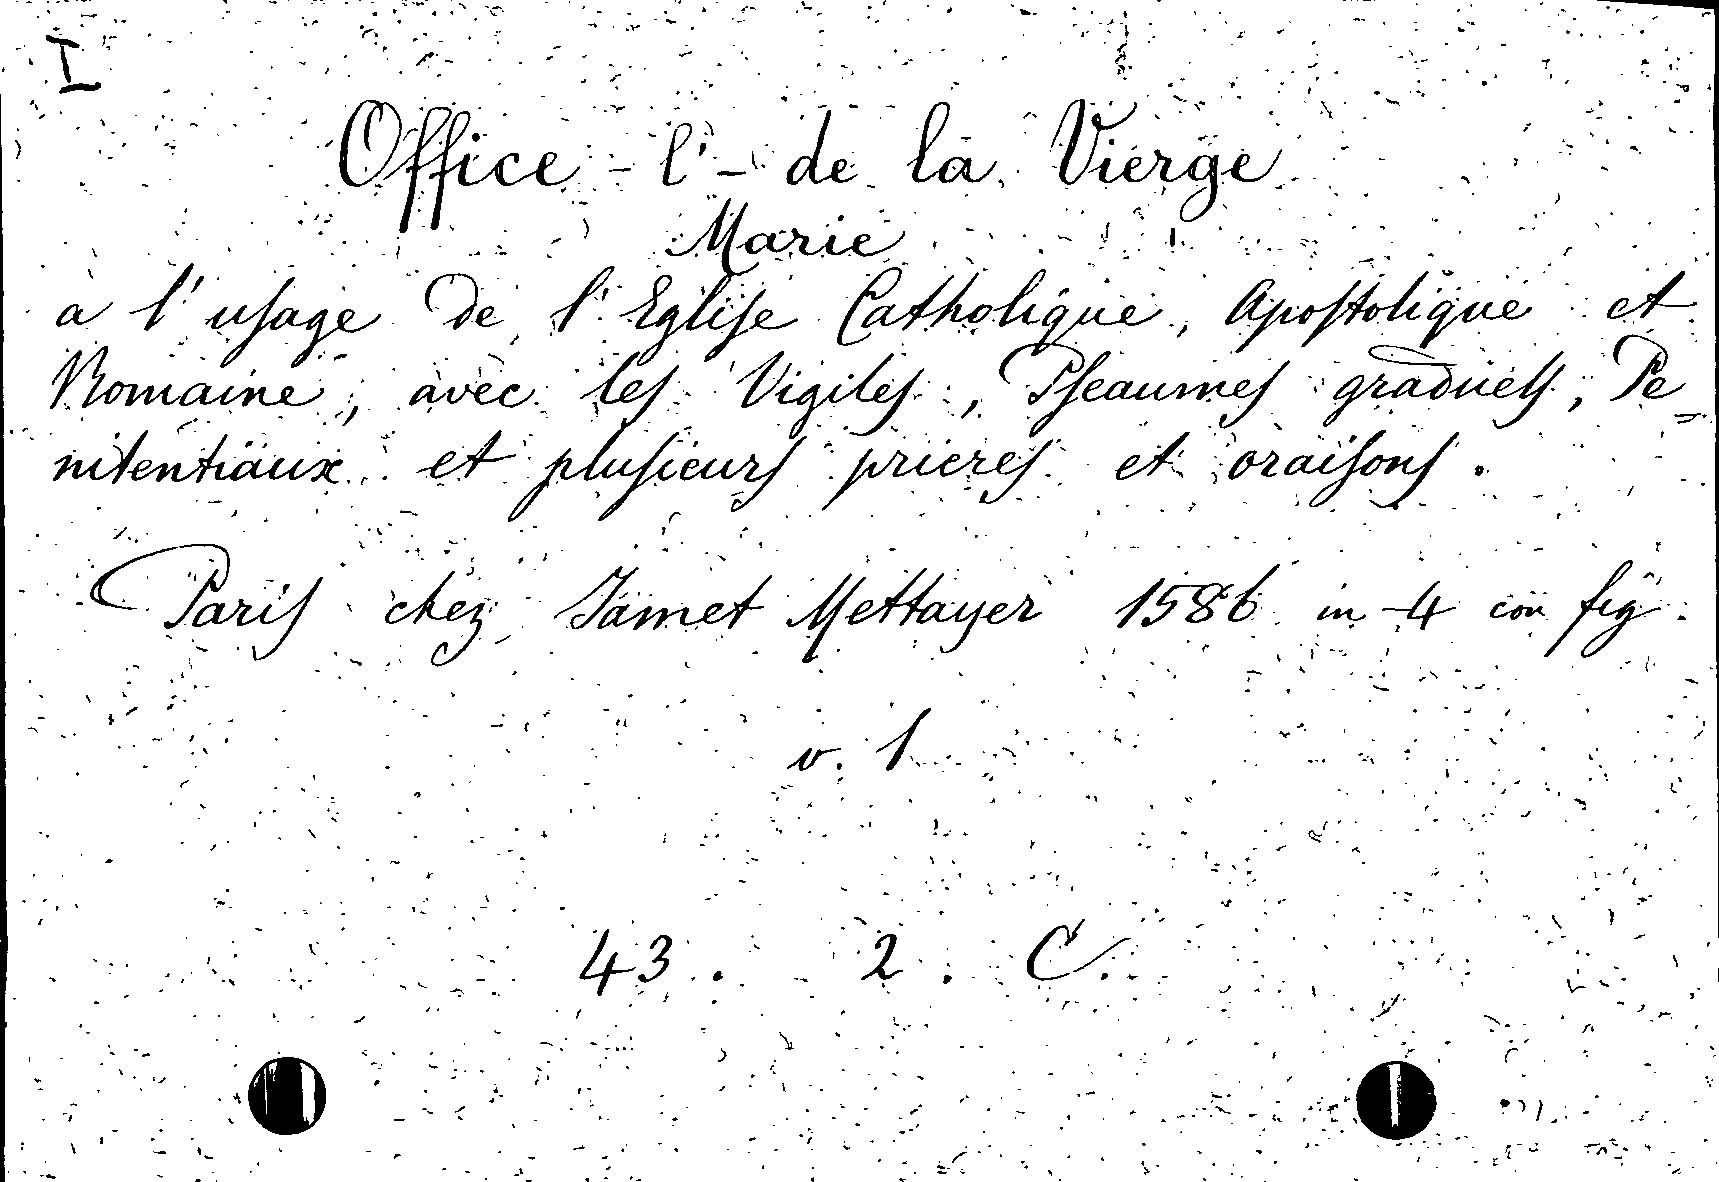 I
Office - l' - de la Vierge
Marie
a l'uſage de l'Egliſe Catholique, Apoſtolique et
Romaine, avec leſ Vigileſ, Pſeaumeſ graduelſ, Pe=
nitentiaux et pluſieurſ priereſ et oraiſonſ.
Pariſ chez Jamet Mettayer 1586 in-4 con fig.
v. 1
43. 2. C.